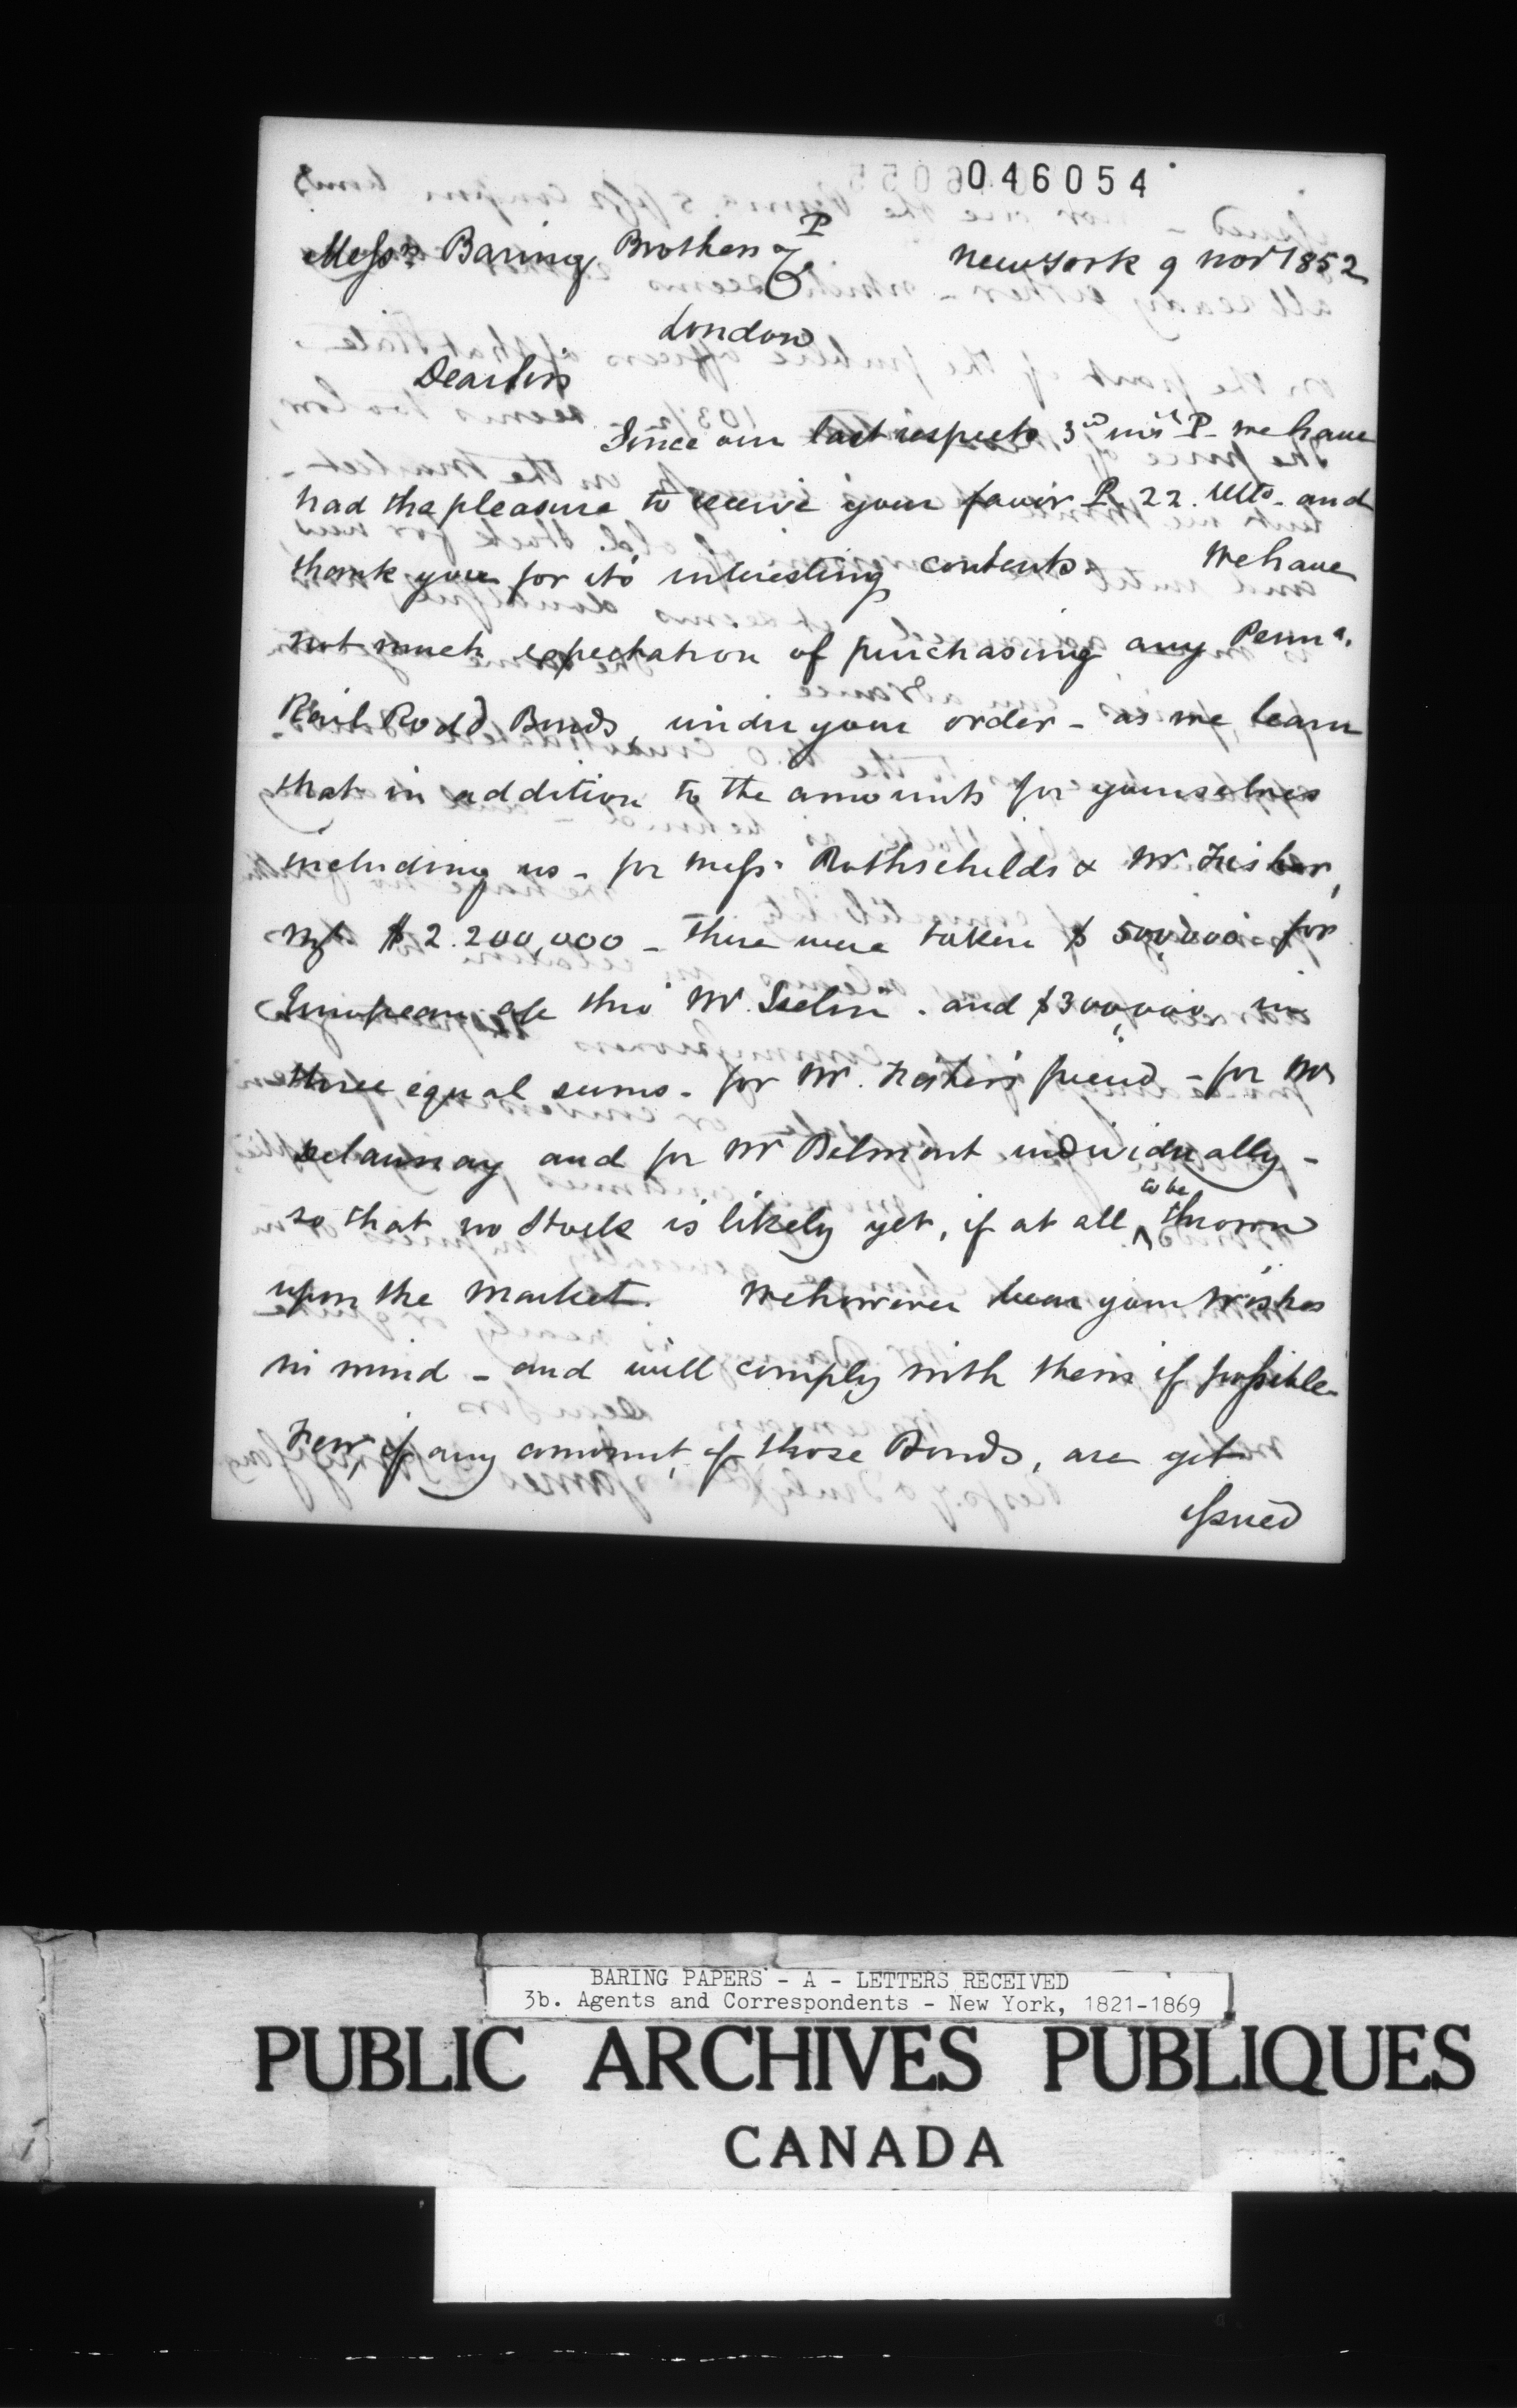 046054
Messrs. Baring Brothers & Co. P
New York 9 Novr 1852
London
Dear Sirs
Since our last respects 3rd inst P. we have
had the pleasure to receive your favor P. 22. Ulto. and
thank you for it's interesting contents. We have
not much expectation of purchasing any Penna.
Rail Road Bonds, under your order - as we learn
that in addition to the amounts for yourselves
including us - for Messrs Rothschilds & Mr. Fisher,
$ 2.200,000 - there were taken $ 500,000 for
European a/c thro' Mr. Iselin - and $300,000, in
three equal sums - for Mr. Fisher's friend - for Mr
Delaunay and for Mr Belmont individually -
so that no Stock is likely yet, if at all, to be thrown
upon the Market. We however bear your wishes
in mind - and will comply with them if possible
Few, if any amount, of those Bonds, are yet
issued
BARING PAPERS - A - LETTERS RECEIVED
3b. Agents and Correspondents - New York, 1821-1869
PUBLIC ARCHIVES PUBLIQUES
CANADA